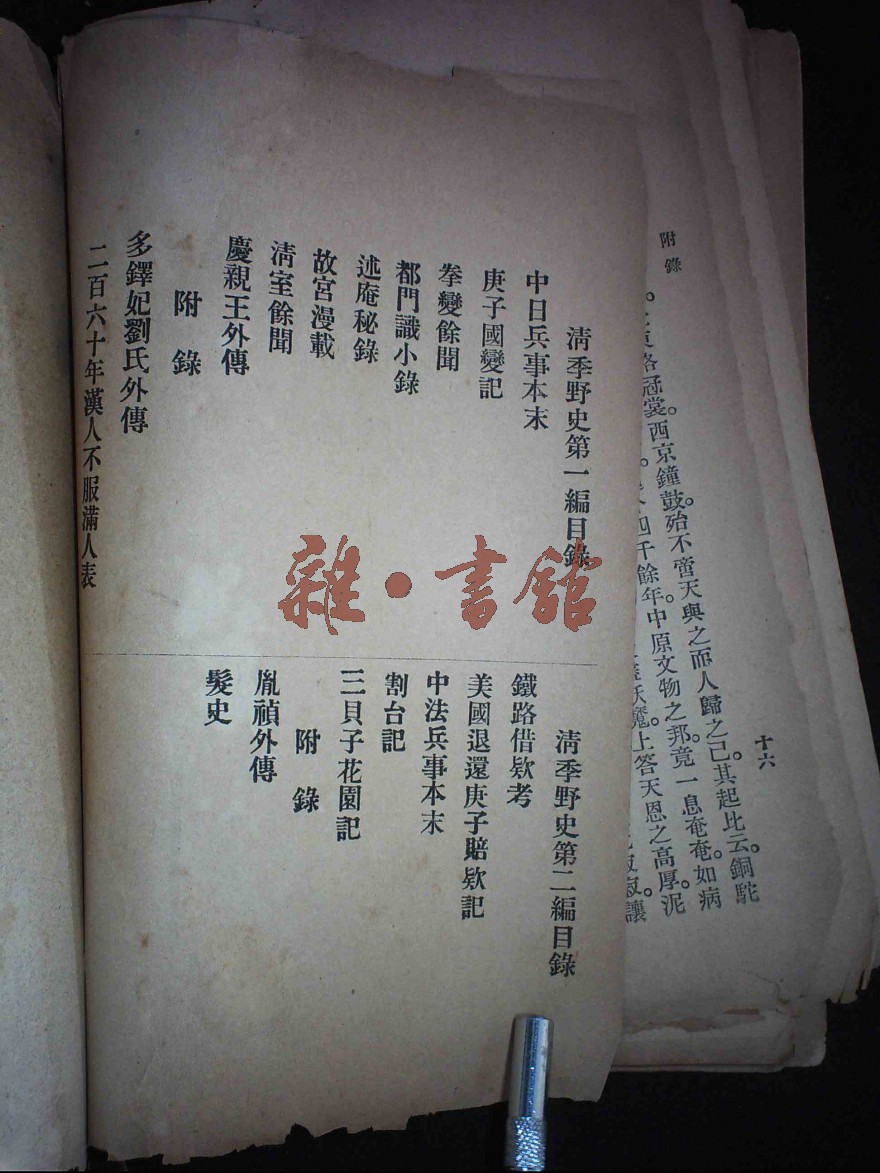 附錄
十六
冠裳。西京鐘鼓。殆不啻天與之而人歸之已。其起比云。銅駝
四千餘年。中原文物之邦。竟一息奄奄。如病
妖魔。上答天恩之高厚。泥
讓
清季野史第一編目錄
中日兵事本末
庚子國變記
拳變餘聞
都門識小錄
述庵秘錄
故宮漫載
清室餘聞
慶親王外傳
附錄
多鐸妃劉氏外傳
二百六十年漢人不服滿人表
清季野史第二編目錄
鐵路借欵考
美國退還庚子賠欵記
中法兵事本末
割台記
三貝子花園記
附錄
胤禎外傳
髮史
雜·書館